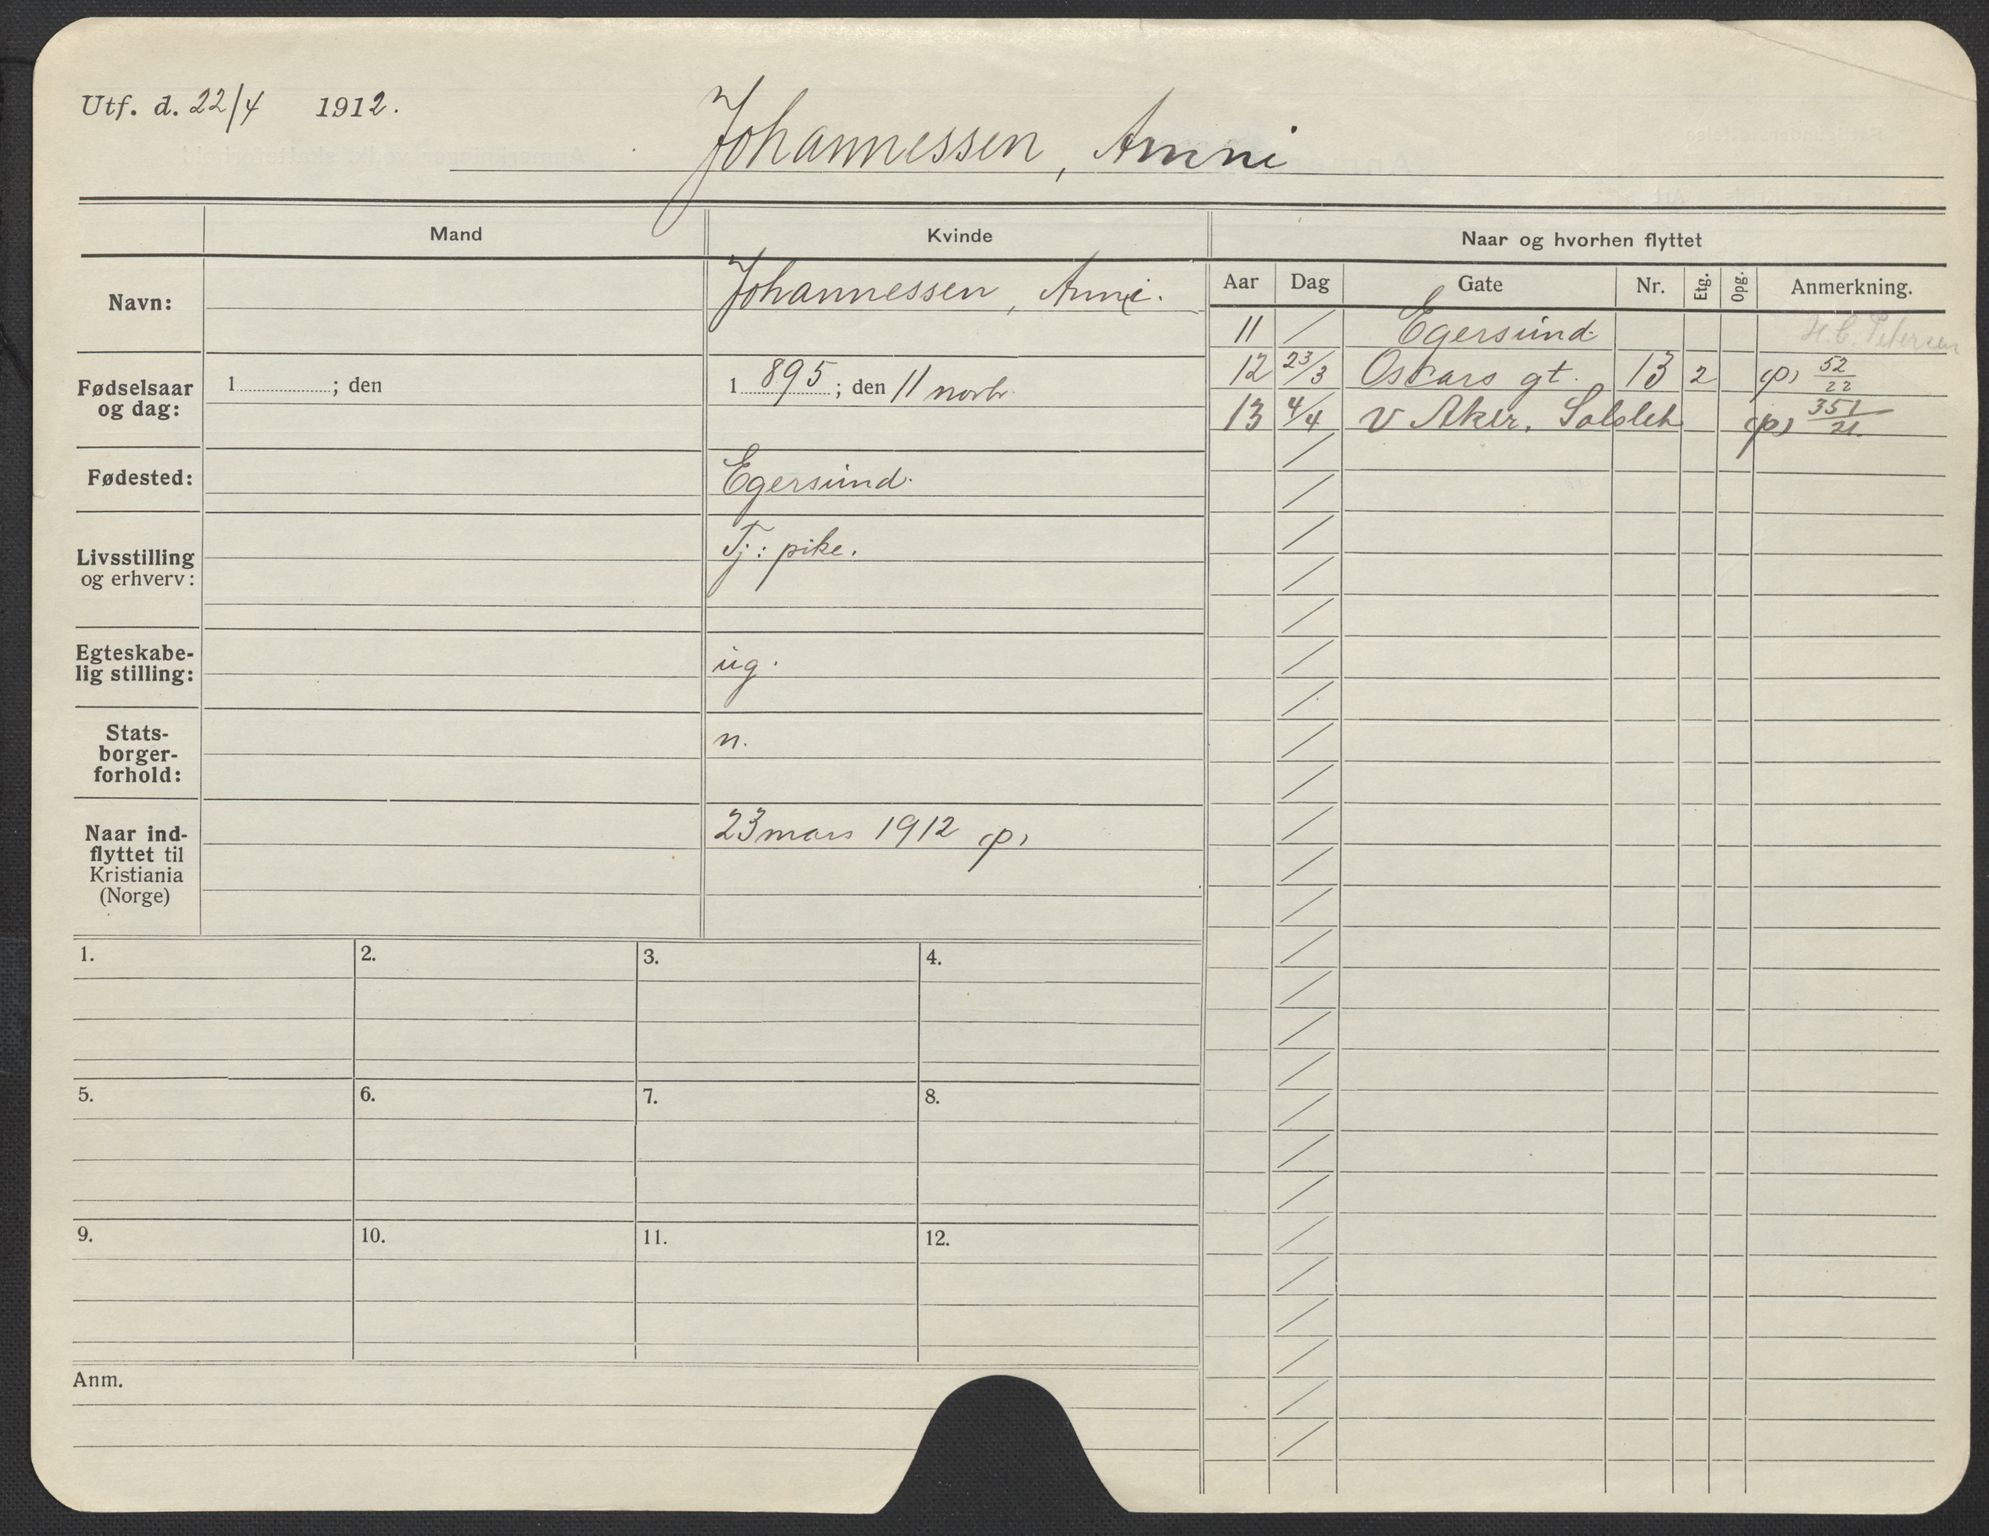 Utf. d. 22/4 1912.
Johannessen, Anni
Mand
Kvinde
Naar og hvorhen flyttet
Navn:
Johannessen, Anni.
Fødselsaar og dag:
1 ; den
1895; den 11 novbr.
Fødested:
Egersund.
Livsstilling og erhverv:
Tj: pike.
Egteskabe-
lig stilling:
ug.
Stats-
borger-
forhold:
n.
Naar ind-
flyttet til
Kristiania
(Norge)
23 mars 1912 (p)
Aar Dag Gate Nr. Etg. Opg. Anmerkning.
11 / Egersund. H. C. Petersen
12 23/3 Oscars gt. 13 2 (p) 52/22
13 4/4 V Aker. (p) 351/21
1.
2.
3.
4.
5.
6.
7.
8.
9.
10.
11.
12.
Anm.